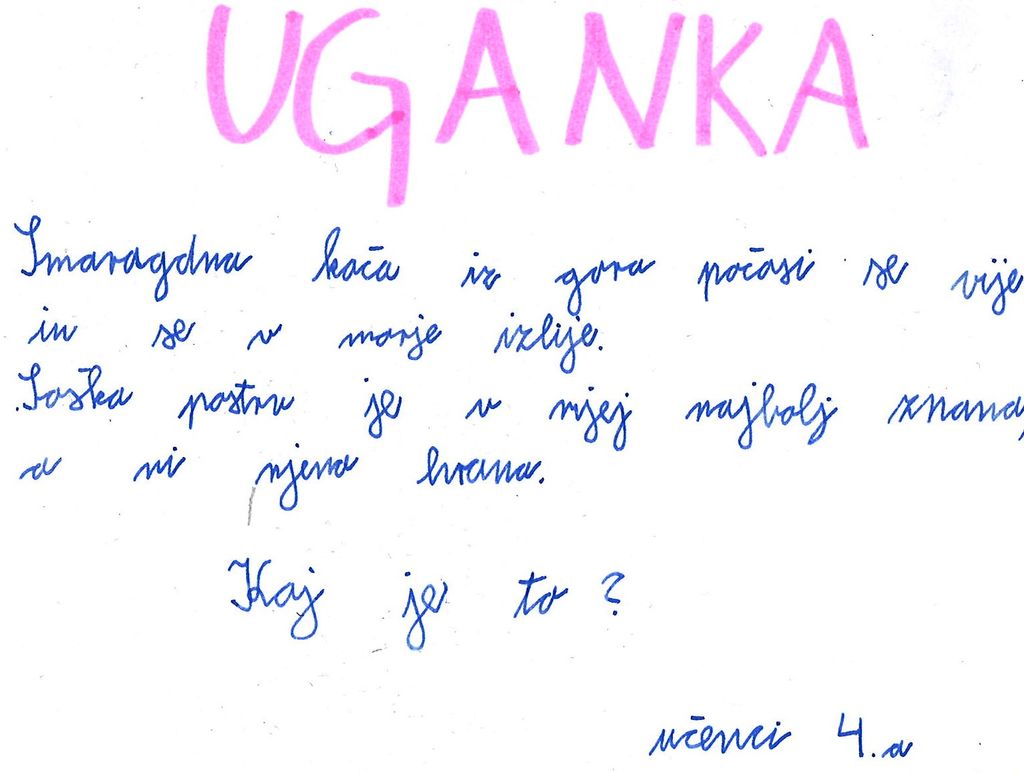 UGANKA
Smaragdna kača iz gora počasi se vije
in se v morje izlije.
Soška postrv je v njej najbolj znana,
a ni njena hrana.
Kaj je to?
učenci 4. a